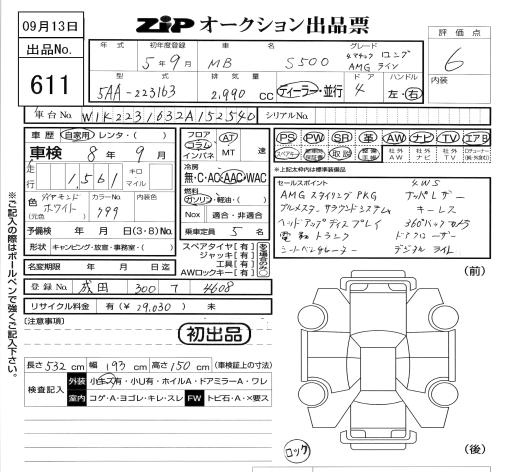 09月13日
ZiP オークション出品票
出品No.
611
評価点
6
内装
年式 初年度登録 車名 グレード
5年9月 MB S500 4マチック ロング
AMG ライン
型式 排気量 ドア ハンドル
5AA-223163 2,990 CC ディーラー・並行 4 左・右
車台No. W1K2231632A152540 シリアルNo.
車歴 自家用 レンタ・( )
車検 8年 9月
走行 1,561 キロ マイル
色 ダイヤモンドホワイト (元色) カラーNo. 799 内装色
予備検 年 月 日(3・8)No.
形状 キャンピング・放宣・事務室・( )
名変期限 年 月 日迄
フロア コラム インパネ AT MT 速
冷房 無・C・AC・AAC・WAC
燃料 ガソリン・軽油・( )
Nox 適合・非適合
乗車定員 5 名
スペアタイヤ[有]
ジャッキ[有]
工具[有]
AWロックキー[有]
PS PW SR 革 AW ナビ TV エアB
取説
社外AW 社外ナビ 社外TV
*上記太枠内は標準装備品
セールスポイント 4WS
AMG スタイリング PKG ナッパレザー
ブルメスター サラウンドシステム キーレス
ヘッドアップディスプレイ 360°バックカメラ
電動トランク ドアクローザー
シートベンチレーター デジタルライト
登録No. 成田 300 フ 4608
リサイクル料金 有(¥29,030) 未
[注意事項]
初出品
長さ532cm 幅193cm 高さ150cm (車検証上の寸法)
検査記入 外装 小キズ有・小U有・ホイルA・ドアミラーA・ワレ
室内 コゲ・A・ヨゴレ・キレ・スレ FW トビ石・A・×要ス
(前)
(後)
ロック
※ご記入の際はボールペンで強くご記入下さい。